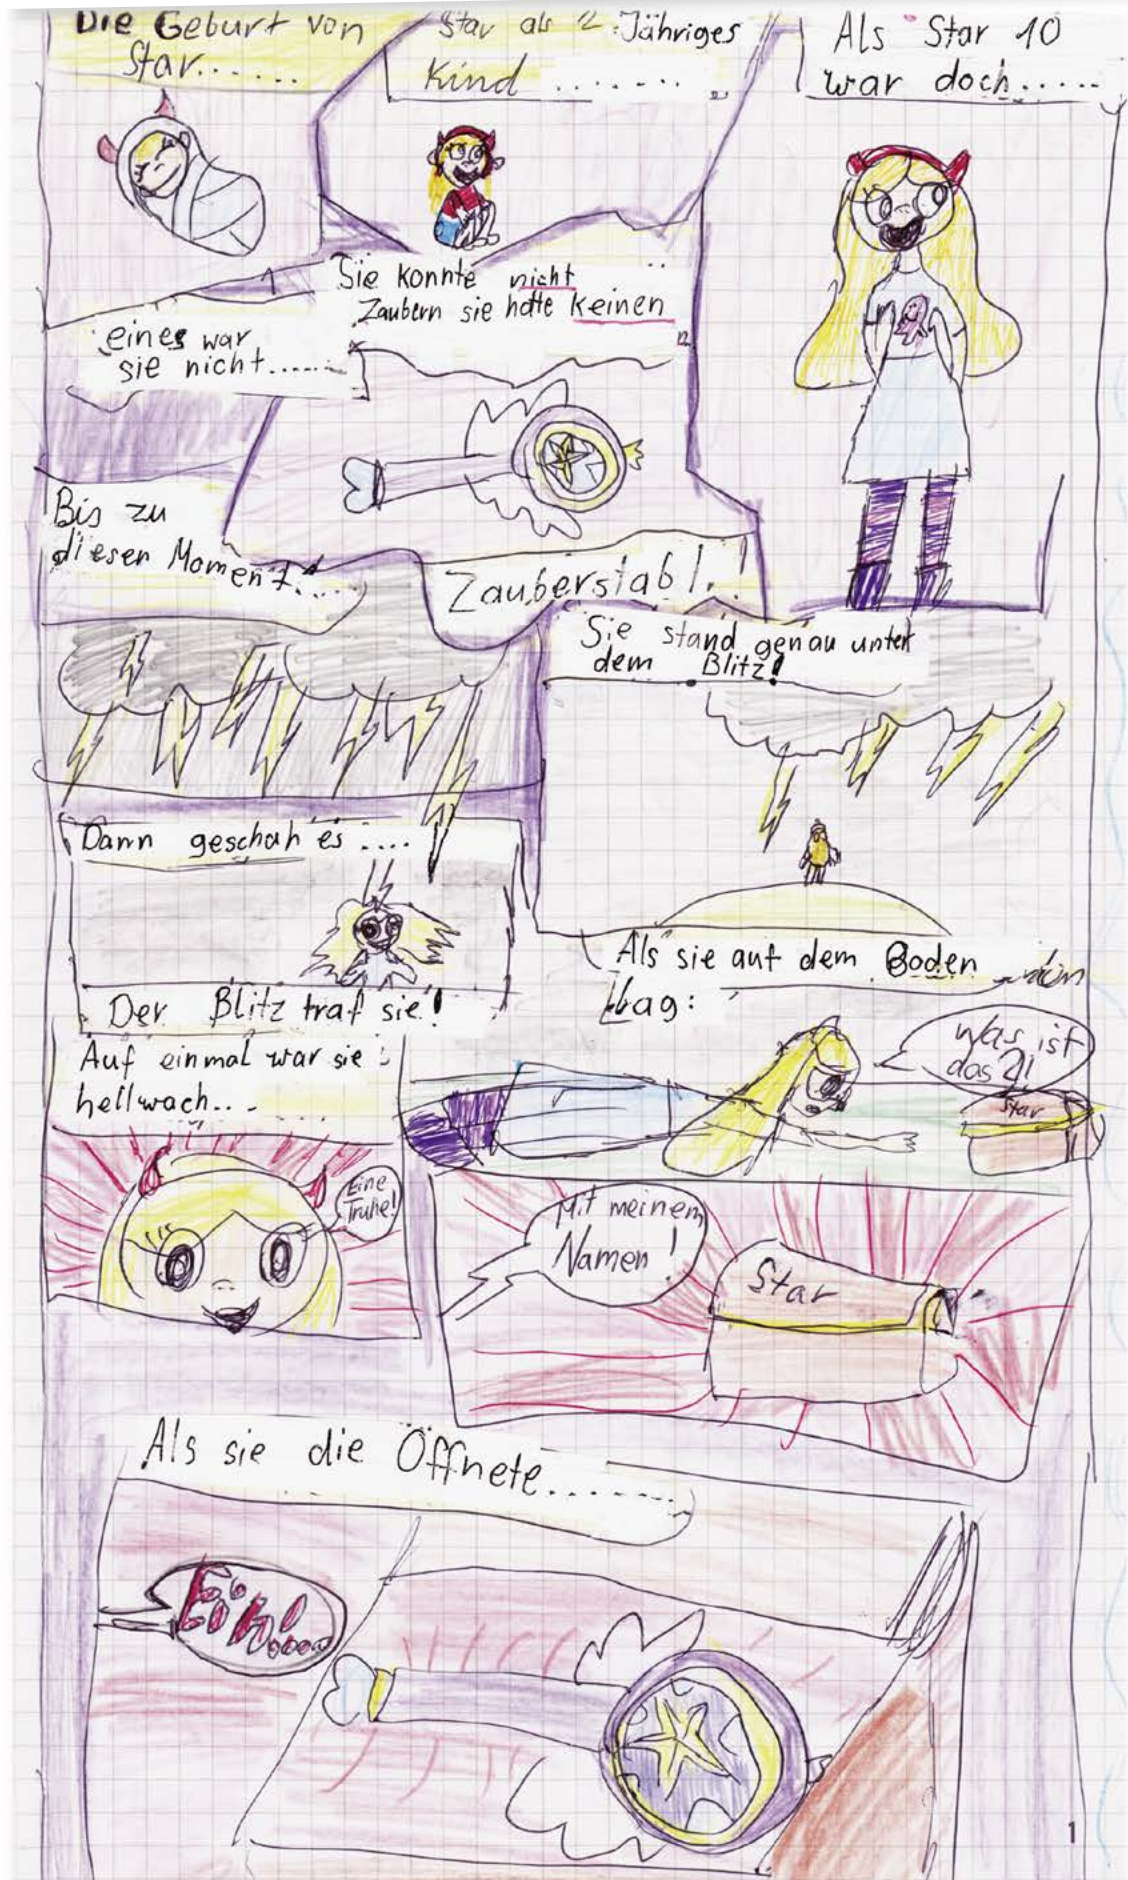 Die Geburt von
Star......
Star als 2 Jähriges
Kind .......
Als Star 10
war doch.....
eines war
sie nicht......
Sie konnte nicht
Zaubern sie hatte keinen
Zauberstab!.!
Bis zu
diesen Moment....
Sie stand genau unter
dem Blitz!
Dann geschah es ....
Der Blitz traf sie!
Als sie auf dem Boden
Lag:
Was ist
das?!
Star
Auf einmal war sie
hellwach...
Eine
Truhe!
Mit meinem
Namen!
Star
Als sie die Öffnete.......
Ein!....
1